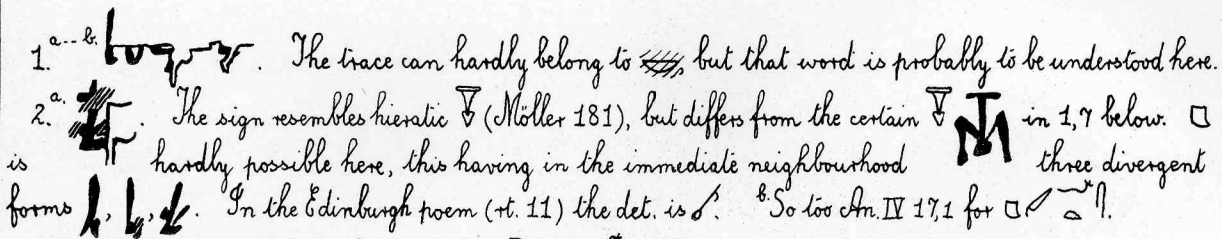 1. a--b. . The trace can hardly belong to but that word is probably to be understood here.
2. a. . The sign resembles hieratic (Möller 181), but differs from the certain in 1,7 below.
is hardly possible here, this having in the immediate neighbourhood three divergent
forms , , . In the Edinburgh poem (rt. 11) the det. is . b. So too An. IV 17,1 for .